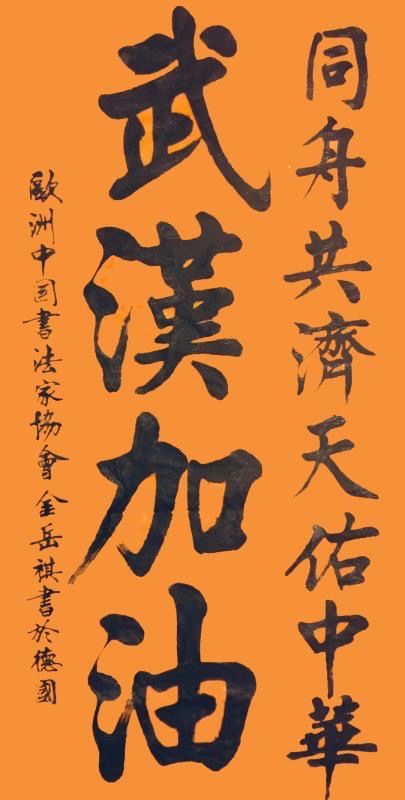 同舟共濟天佑中華
武漢加油
歐洲中国書法家協會金岳祺書於德國